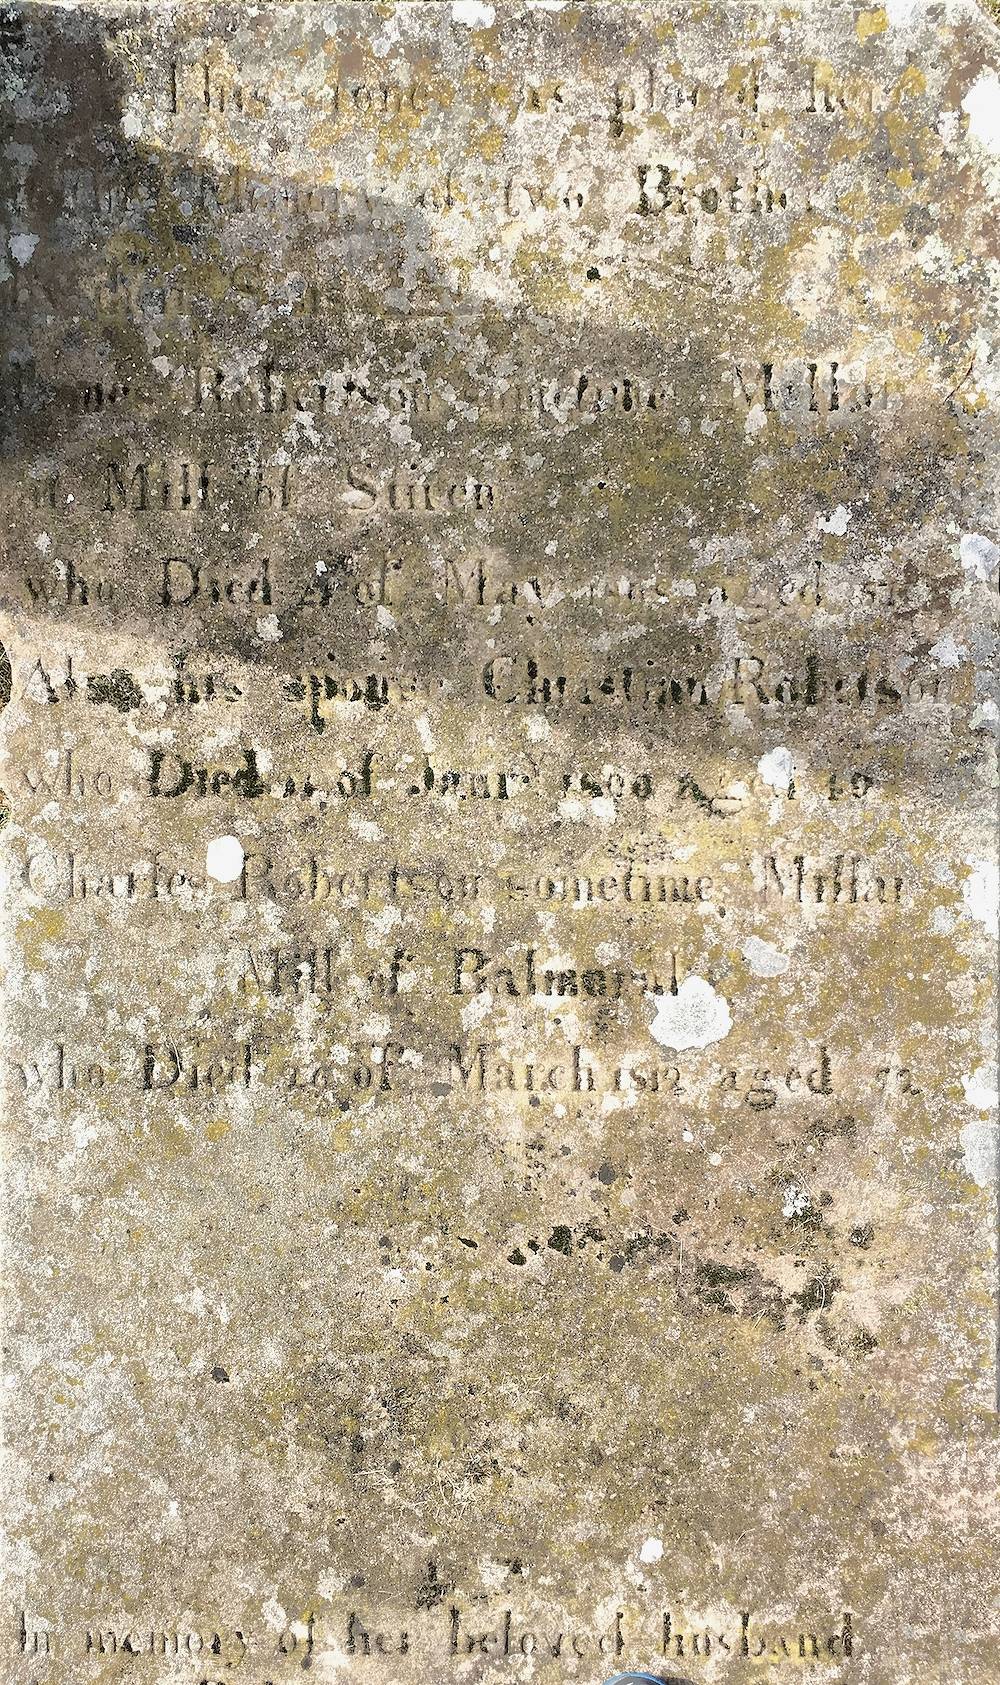 This stone was placed here
Memory of two Brothers
James Robertson sometime Millar
at Mill of Stiren
who Died of May aged
Also his spouse Christian Robertson
who Died 11 of Janr 1800 aged 49
Charles Robertson sometime Millar
Mill of Balmoral
who Died of March 1812 aged
In memory of her beloved husband